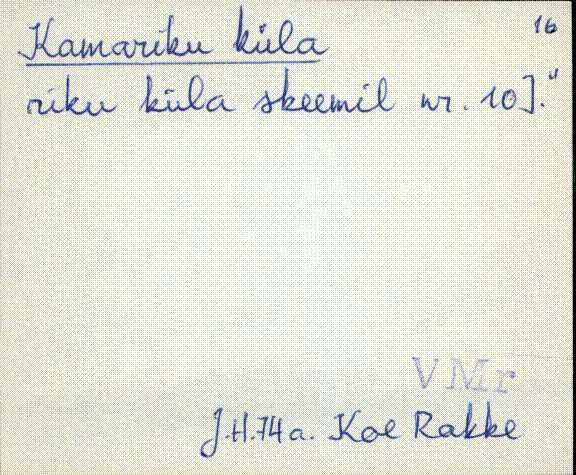 16
Kamariku küla
riku küla skeemil nr. 10]."
VMr
J.H.74a. Koe Rakke